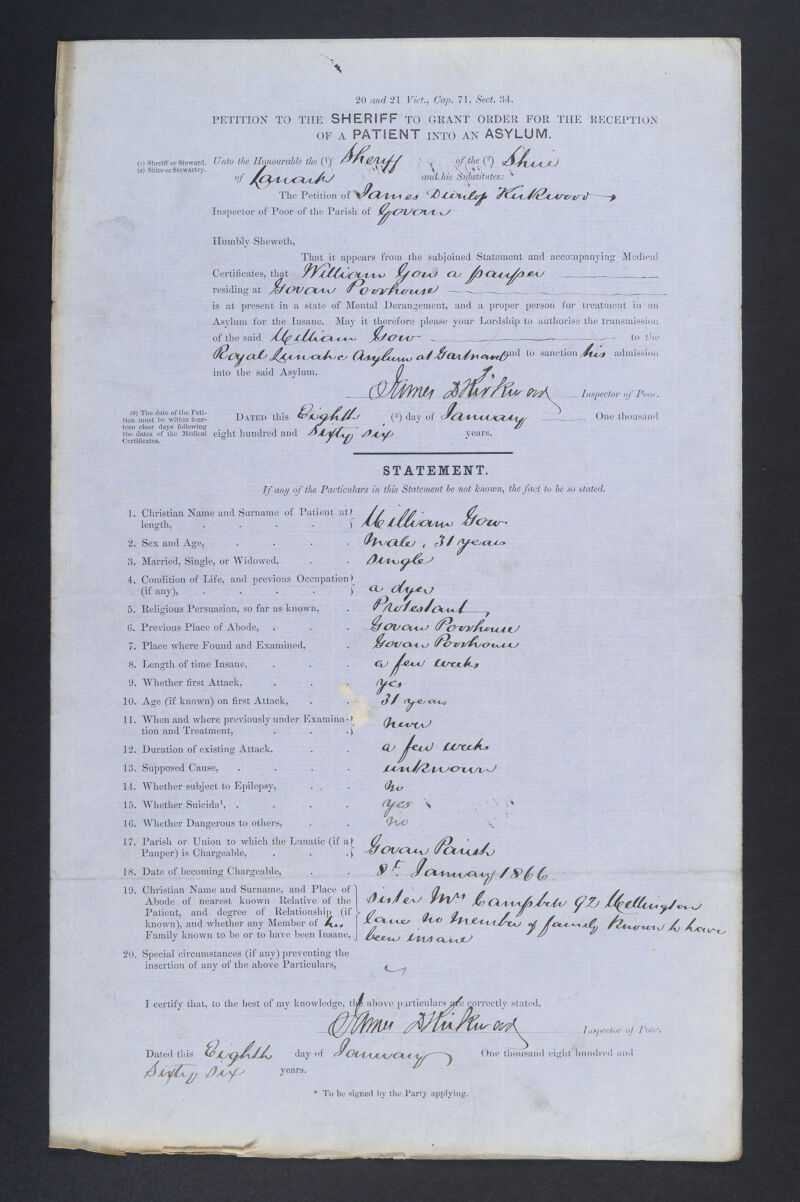 20 and 21 Vict., Cap. 71, Sect. 34.
PETITION TO THE SHERIFF TO GRANT ORDER FOR THE RECEPTION
OF A PATIENT INTO AN ASYLUM.
(1) Sheriff or Steward.
(2) Shire or Stewartry.
Unto the Honourable the (1) Sheriff of the (2) Shire
of Lanark and his Substitutes:
The Petition of James Dunlop Kirkwood
Inspector of Poor of the Parish of Govan
Humbly Sheweth,
That it appears from the subjoined Statement and accompanying Medical
Certificates, that William Gow a pauper
residing at Govan Poorhouse
is at present in a state of Mental Derangement, and a proper person for treatment in an
Asylum for the Insane. May it therefore please your Lordship to authorise the transmission
of the said William Gow to the
Royal Lunatic Asylum at Gartnavel and to sanction his admission
into the said Asylum.
James D Kirkwood Inspector of Poor.
(3) The date of the Peti-
tion must be within four-
teen clear days following
the dates of the Medical
Certificates.
DATED this Eighth (3) day of January One thousand
eight hundred and Sixty six years.
STATEMENT.
If any of the Particulars in this Statement be not known, the fact to be so stated.
1. Christian Name and Surname of Patient at
length, William Gow
2. Sex and Age, Male, 31 years
3. Married, Single, or Widowed, Single
4. Condition of Life, and previous Occupation
(if any), a dyer
5. Religious Persuasion, so far as known, Protestant
6. Previous Place of Abode, Govan Poorhouse
7. Place where Found and Examined, Govan Poorhouse
8. Length of time Insane, a few weeks
9. Whether first Attack, yes
10. Age (if known) on first Attack, 31 years
11. When and where previously under Examina-
tion and Treatment, never
12. Duration of existing Attack, a few weeks
13. Supposed Cause, unknown
14. Whether subject to Epilepsy, No
15. Whether Suicidal, yes
16. Whether Dangerous to others, no
17. Parish or Union to which the Lunatic (if a
Pauper) is Chargeable, Govan Parish
18. Date of becoming Chargeable, 8t. January 1866
19. Christian Name and Surname, and Place of
Abode of nearest known Relative of the
Patient, and degree of Relationship (if
known), and whether any Member of his
Family known to be or to have been Insane,
Sister Mrs Campbell 92 Wellington
lane No Member of family Known to have
been insane
20. Special circumstances (if any) preventing the
insertion of any of the above Particulars,
I certify that, to the best of my knowledge, the above particulars are correctly stated.
James D Kirkwood Inspector of Poor.
Dated this Eighth day of January One thousand eight hundred and
Sixty six years.
* To be signed by the Party applying.